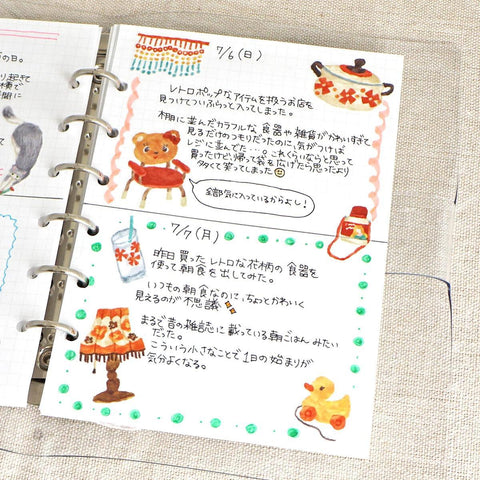 の日。
り起きて
7/6(日)
レトロポップなアイテムを扱うお店を
見つけてついふらっと入ってしまった。
棚に並んだカラフルな食器や雑貨がかわいすぎて
見るだけのつもりだったのに、気がつけば
レジに並んでた…。これくらいならと思って
買ったけど、帰って袋を広げたら思ったより
多くて笑ってしまった
全部気に入っているからよし!
7/7(月)
昨日買ったレトロな花柄の食器を
使って朝食を出してみた。
いつもの朝食なのに、ちょっとかわいく
見えるのが不思議
まるで昔の雑誌に載っている朝ごはんみたい
だった。
こういう小さなことで1日の始まりが
気分よくなる。